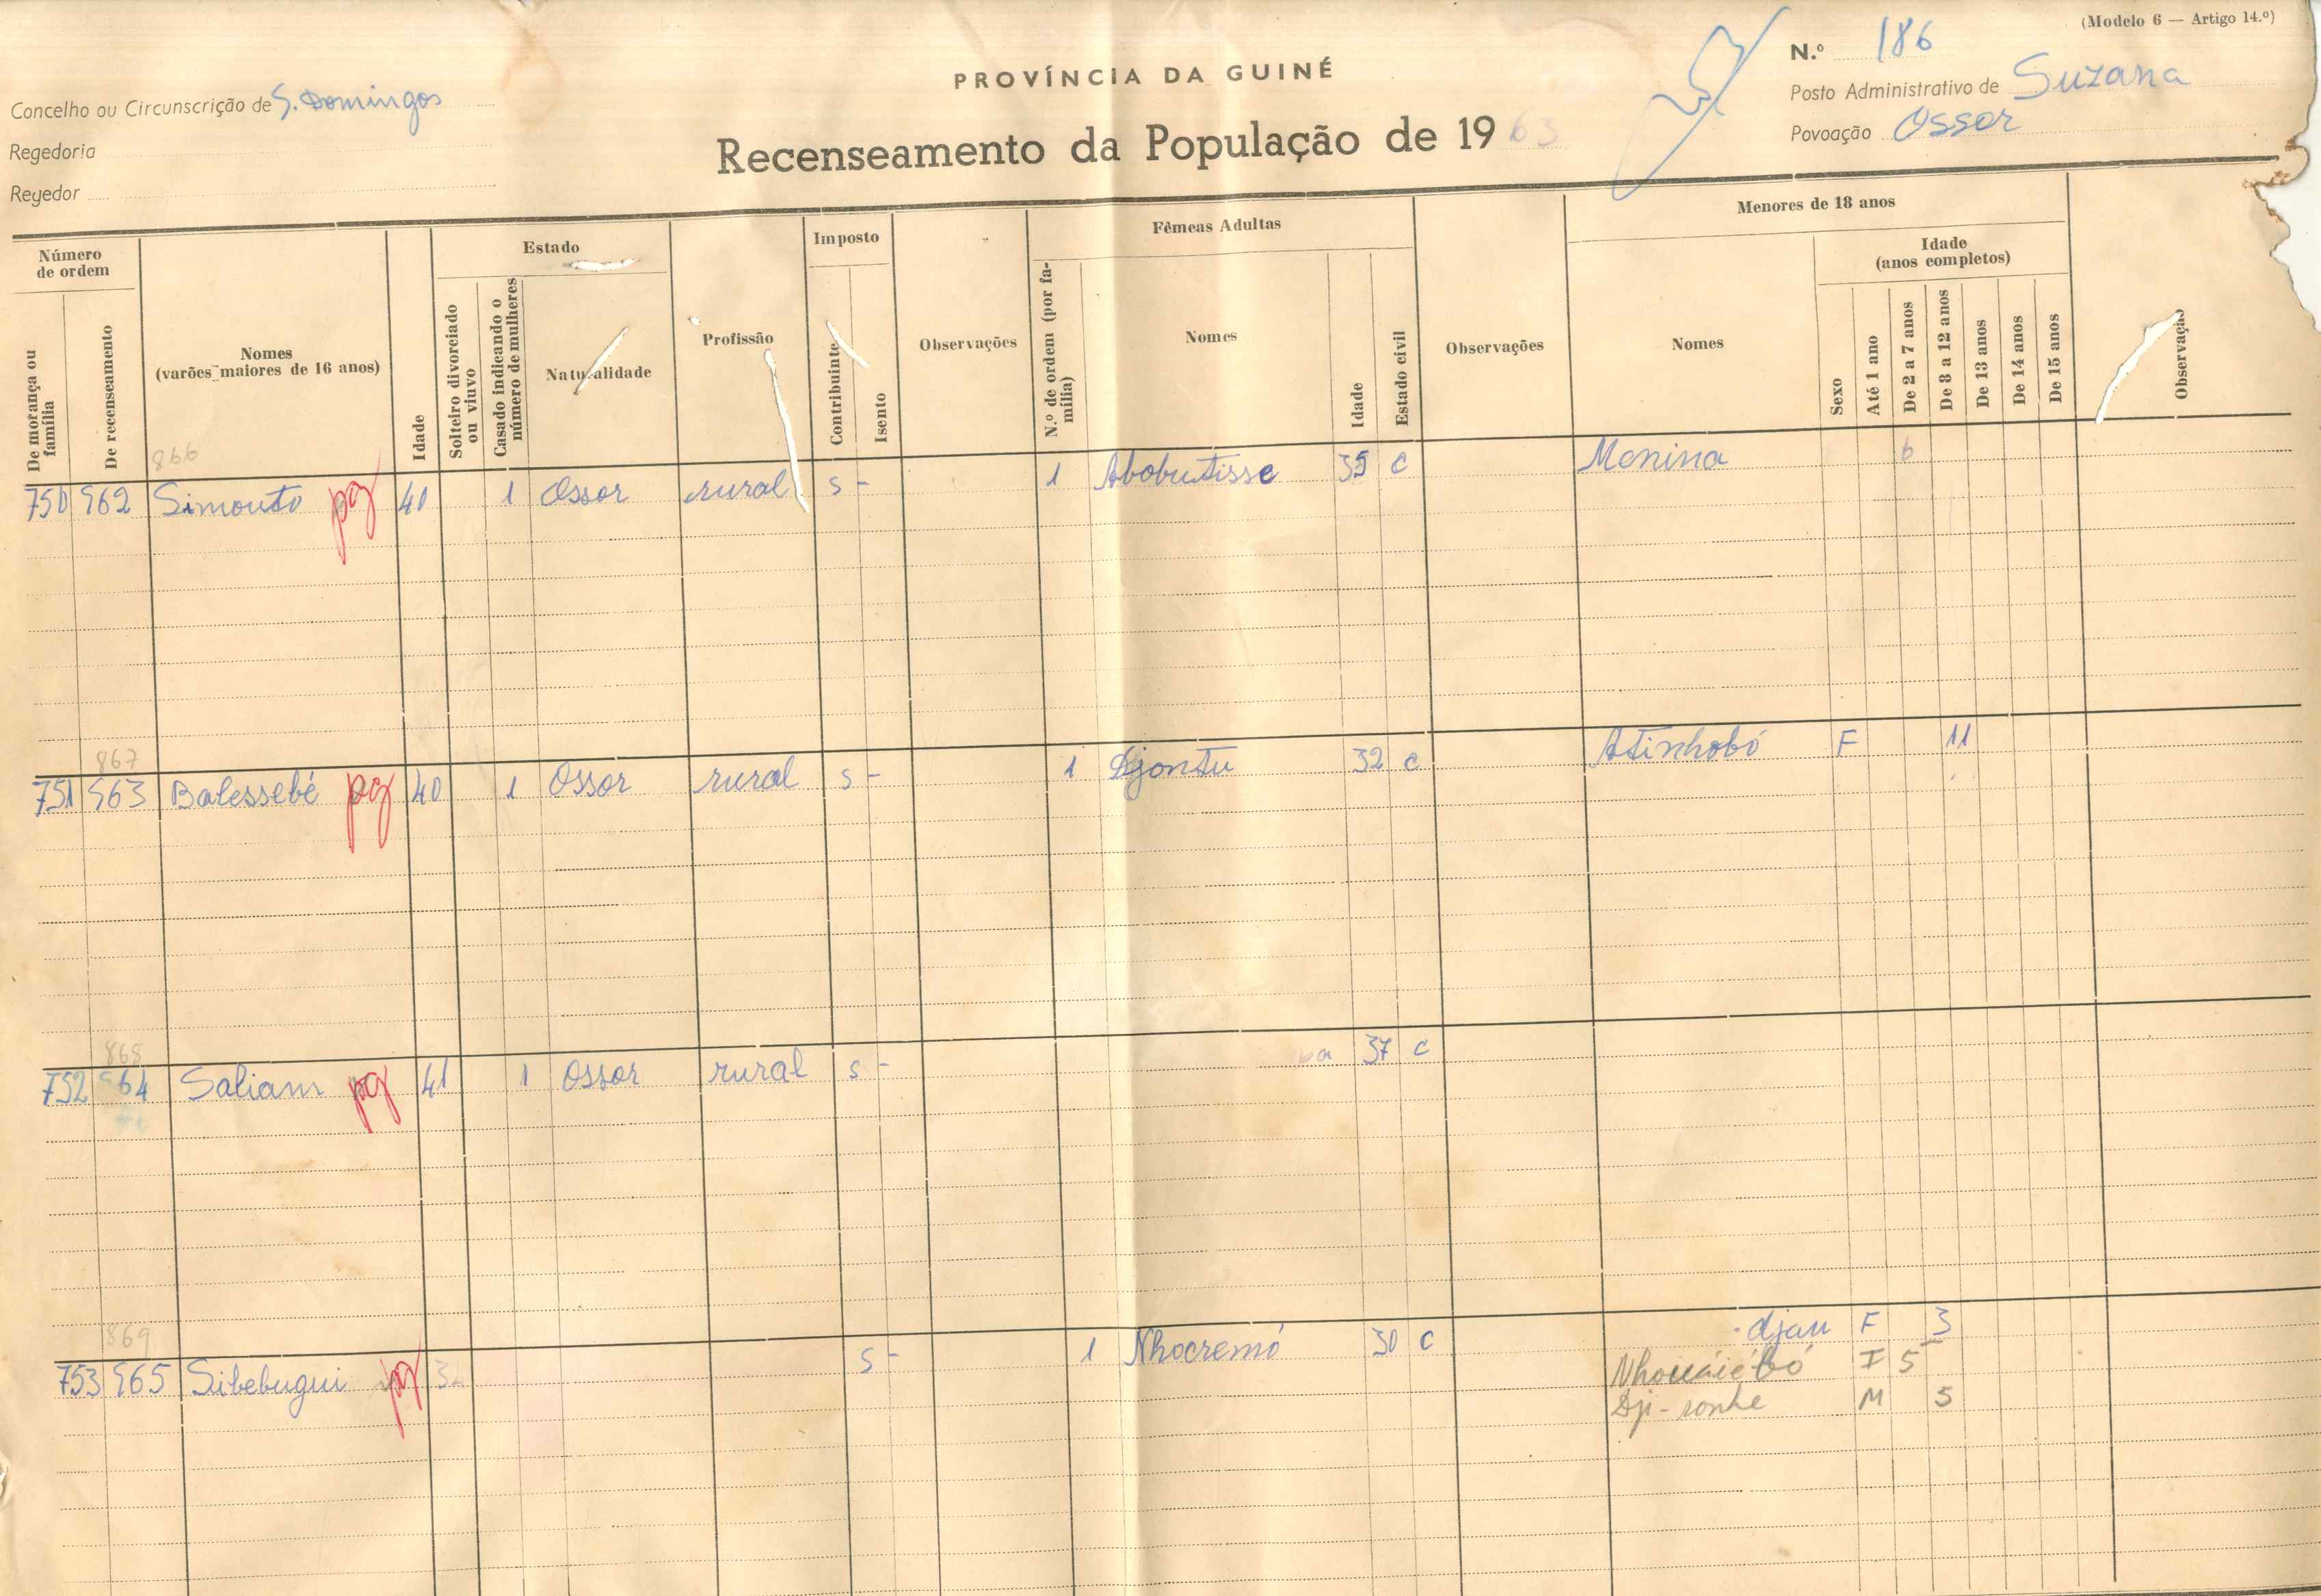 (Modelo 6 — Artigo 14.º)
N.º 186
PROVÍNCIA DA GUINÉ
Concelho ou Circunscrição de S. Domingos
Posto Administrativo de Suzana
Regedoria
Recenseamento da População de 1963
Povoação Ossor
Regedor
Número de ordem
De morança ou família
De recenseamento
Nomes
(varões maiores de 16 anos)
Idade
Estado
Solteiro divorciado ou viuvo
Casado indicando o número de mulheres
Naturalidade
Profissão
Imposto
Contribuinte
Isento
Observações
Fêmeas Adultas
N.º de ordem (por família)
Nomes
Idade
Estado civil
Observações
Menores de 18 anos
Nomes
Sexo
Idade
(anos completos)
Até 1 ano
De 2 a 7 anos
De 8 a 12 anos
De 13 anos
De 14 anos
De 15 anos
Observaçã
866
750 962 Simouto pg 40 1 Ossor rural s - 1 Abobutisse 35 c Monina 6
867
751 963 Balessebé pg 40 1 Ossor rural s - 1 Djontu 32 c Atinhobó F 11
868
752 964 Saliam pg 41 1 Ossor rural s - ba 37 c
869
753 965 Sibebugui pg 32 s - 1 Nhocremó 30 c djau F 3
5
Dji-sonhe M 5